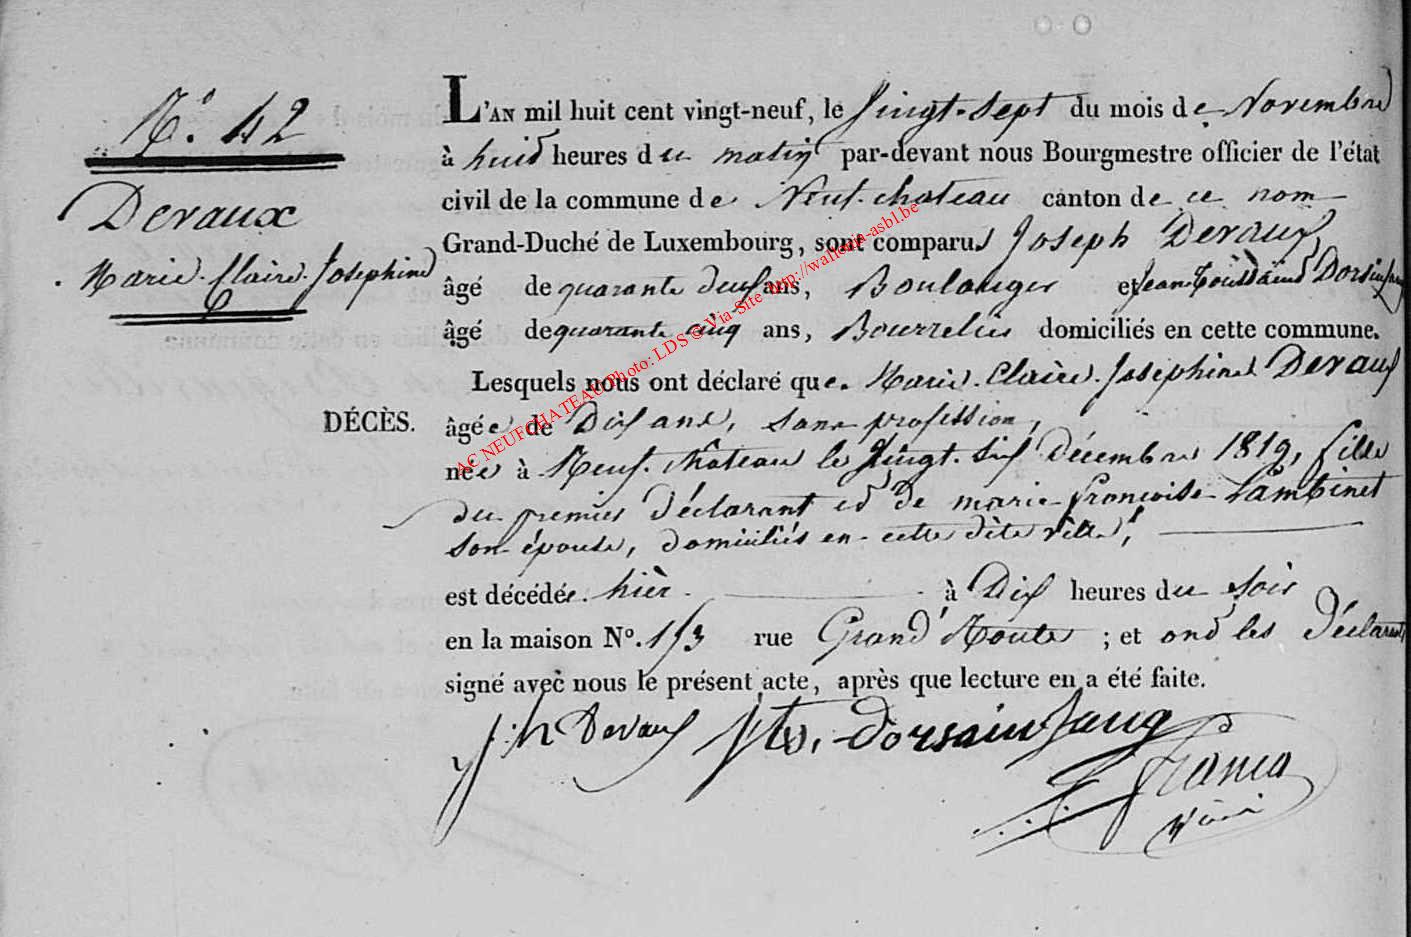 N.° 42
Devaux
Marie. Claire. Josephine
DÉCÈS.
L'AN mil huit cent vingt-neuf, le Vingt-Sept du mois de Novembre
à huit heures du matin par-devant nous Bourgmestre officier de l'état
civil de la commune de Neuf-chateau canton de ce nom
Grand-Duché de Luxembourg, sont comparus Joseph Devaux
âgé de quarante deux ans, Boulanger et Jean Toussaint Dorsinfang
âgé de quarante cinq ans, Bourrelier domiciliés en cette commune.
Lesquels nous ont déclaré que Marie. Claire. Josephine Devaux
âgée de Dix ans, sans profession,
née à Neuf-château le Vingt-six Décembre 1819, fille
du premier déclarant et de marie françoise Lambinet
son épouse, domiciliés en cette dite ville,
est décédée hièr à Dix heures du soir
en la maison N°. 153 rue Grand' Route ; et ont les Déclarants
signé avec nous le présent acte, après que lecture en a été faite.
Jh Devaux Jts. dorsainfang
AC NEUFCHATEAU Photo: LDS © Via-Site http://wallonia-asbl.be